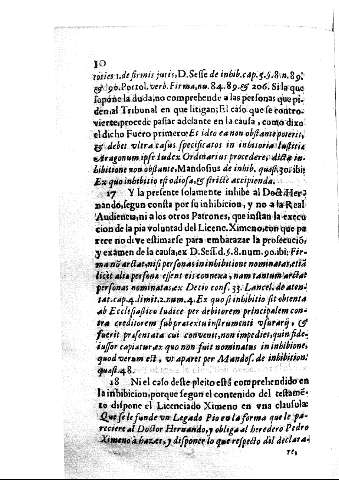 10
tories 1. de firmis juris, D. Sesse de inhib. cap. 5. §. 8. n. 89.
& 90. Portol. verb. Firma, nu. 84. 89. & 206. Si la que
supone la duda, no comprehende a las personas que pi-
den al Tribunal en que litigan; El caso que se contro-
vierte procede passar adelante en la causa, como dixo
el dicho Fuero primero: Et ideo ea non obstante poteris,
& debet ultra casus specificatos in inhibitoria Iustitiæ
Aragonum ipse Iudex Ordinarius procedere, dicta in-
hibitione non obstante, Mandosius de inhib. quæst. 30. ibi:
Ex quo inhibitio est odiosa, & stricte accipienda.
17 Y la presente solamente inhibe al Doct. Her-
nando, segun consta por su inhibicion, y no a la Real
Audiencia, ni a los otros Patrones, que instan la execu
cion de la pia voluntad del Licenc. Ximeno, con que pa
rece no deve estimarse para embarazar la prosecuciõ,
y examen de la causa, ex D. Sess. d. §. 8. num. 90. ibi: Fir-
ma nõ arctat, nisi personas in inhibitione nominatas, etiã
licet aliæ personæ essent eis connexæ, nam tantum arctat
personas nominatas, ex Decio cons. 33. Lancel. de aten-
tat. cap. 4. limit. 2. num. 4. Ex quo si inhibitio sit obtenta
ab Ecclesiastico Iudice per debitorem principalem con-
tra creditorem sub prætextu instrumenti usurarij, &
fuerit præsentata cui convenit, non impediet, quin fide-
iussor capiatur ex quo non fuit nominatus in inhibitione,
quod verum est, ut apparet per Mandos. de inhibition:
quæst. 48.
18 Ni el caso deste pleito està comprehendido en
la inhibicion, porque segun el contenido del testamẽ-
to dispone el Licenciado Ximeno en vna clausula:
Que se le funde un Legado Pio en la forma que le pa-
reciere al Doctor Hernando, y obliga al heredero Pedro
Ximeno à hazer, y disponer lo que respecto dèl declara-
re,